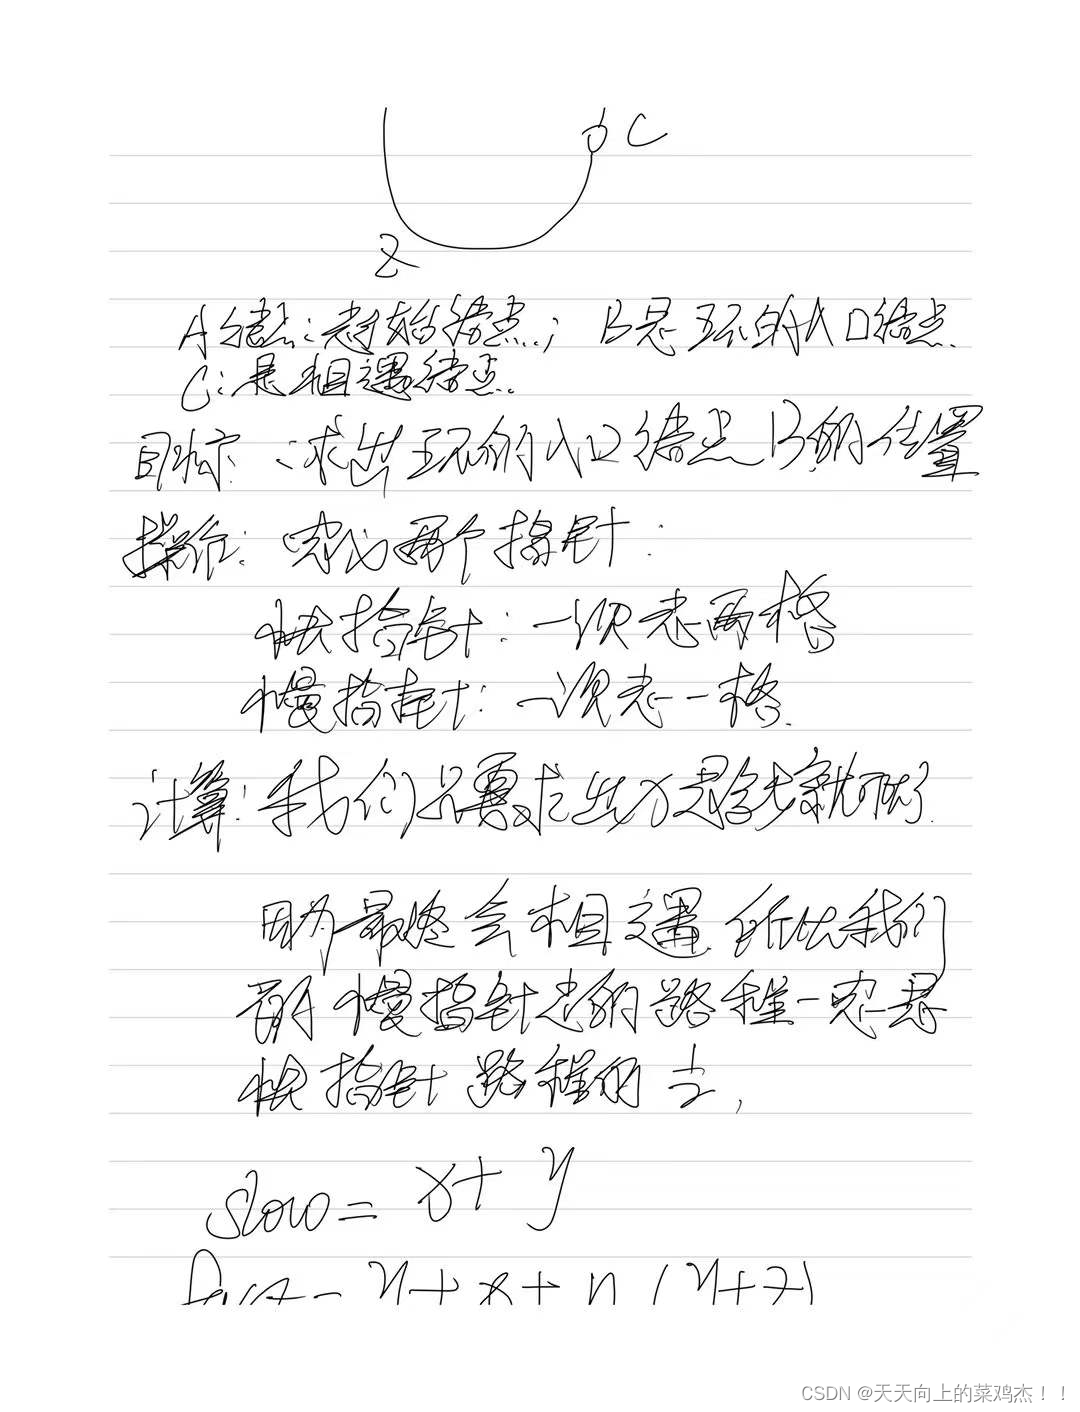 C
Z
A结点:起始结点; B是环的入口结点.
C:是相遇结点.
目标:求出环的入口结点B的位置
操作: 两个指针:
快指针:一次走两格
慢指针:一次走一格.
计算:我们只要求出x是多少就可以了.
因为最终会相遇 所以我们
慢指针走的路程一定是
快指针路程的
slow = x+y
= y+x+n(y+z)
CSDN @天天向上的菜鸡杰！！